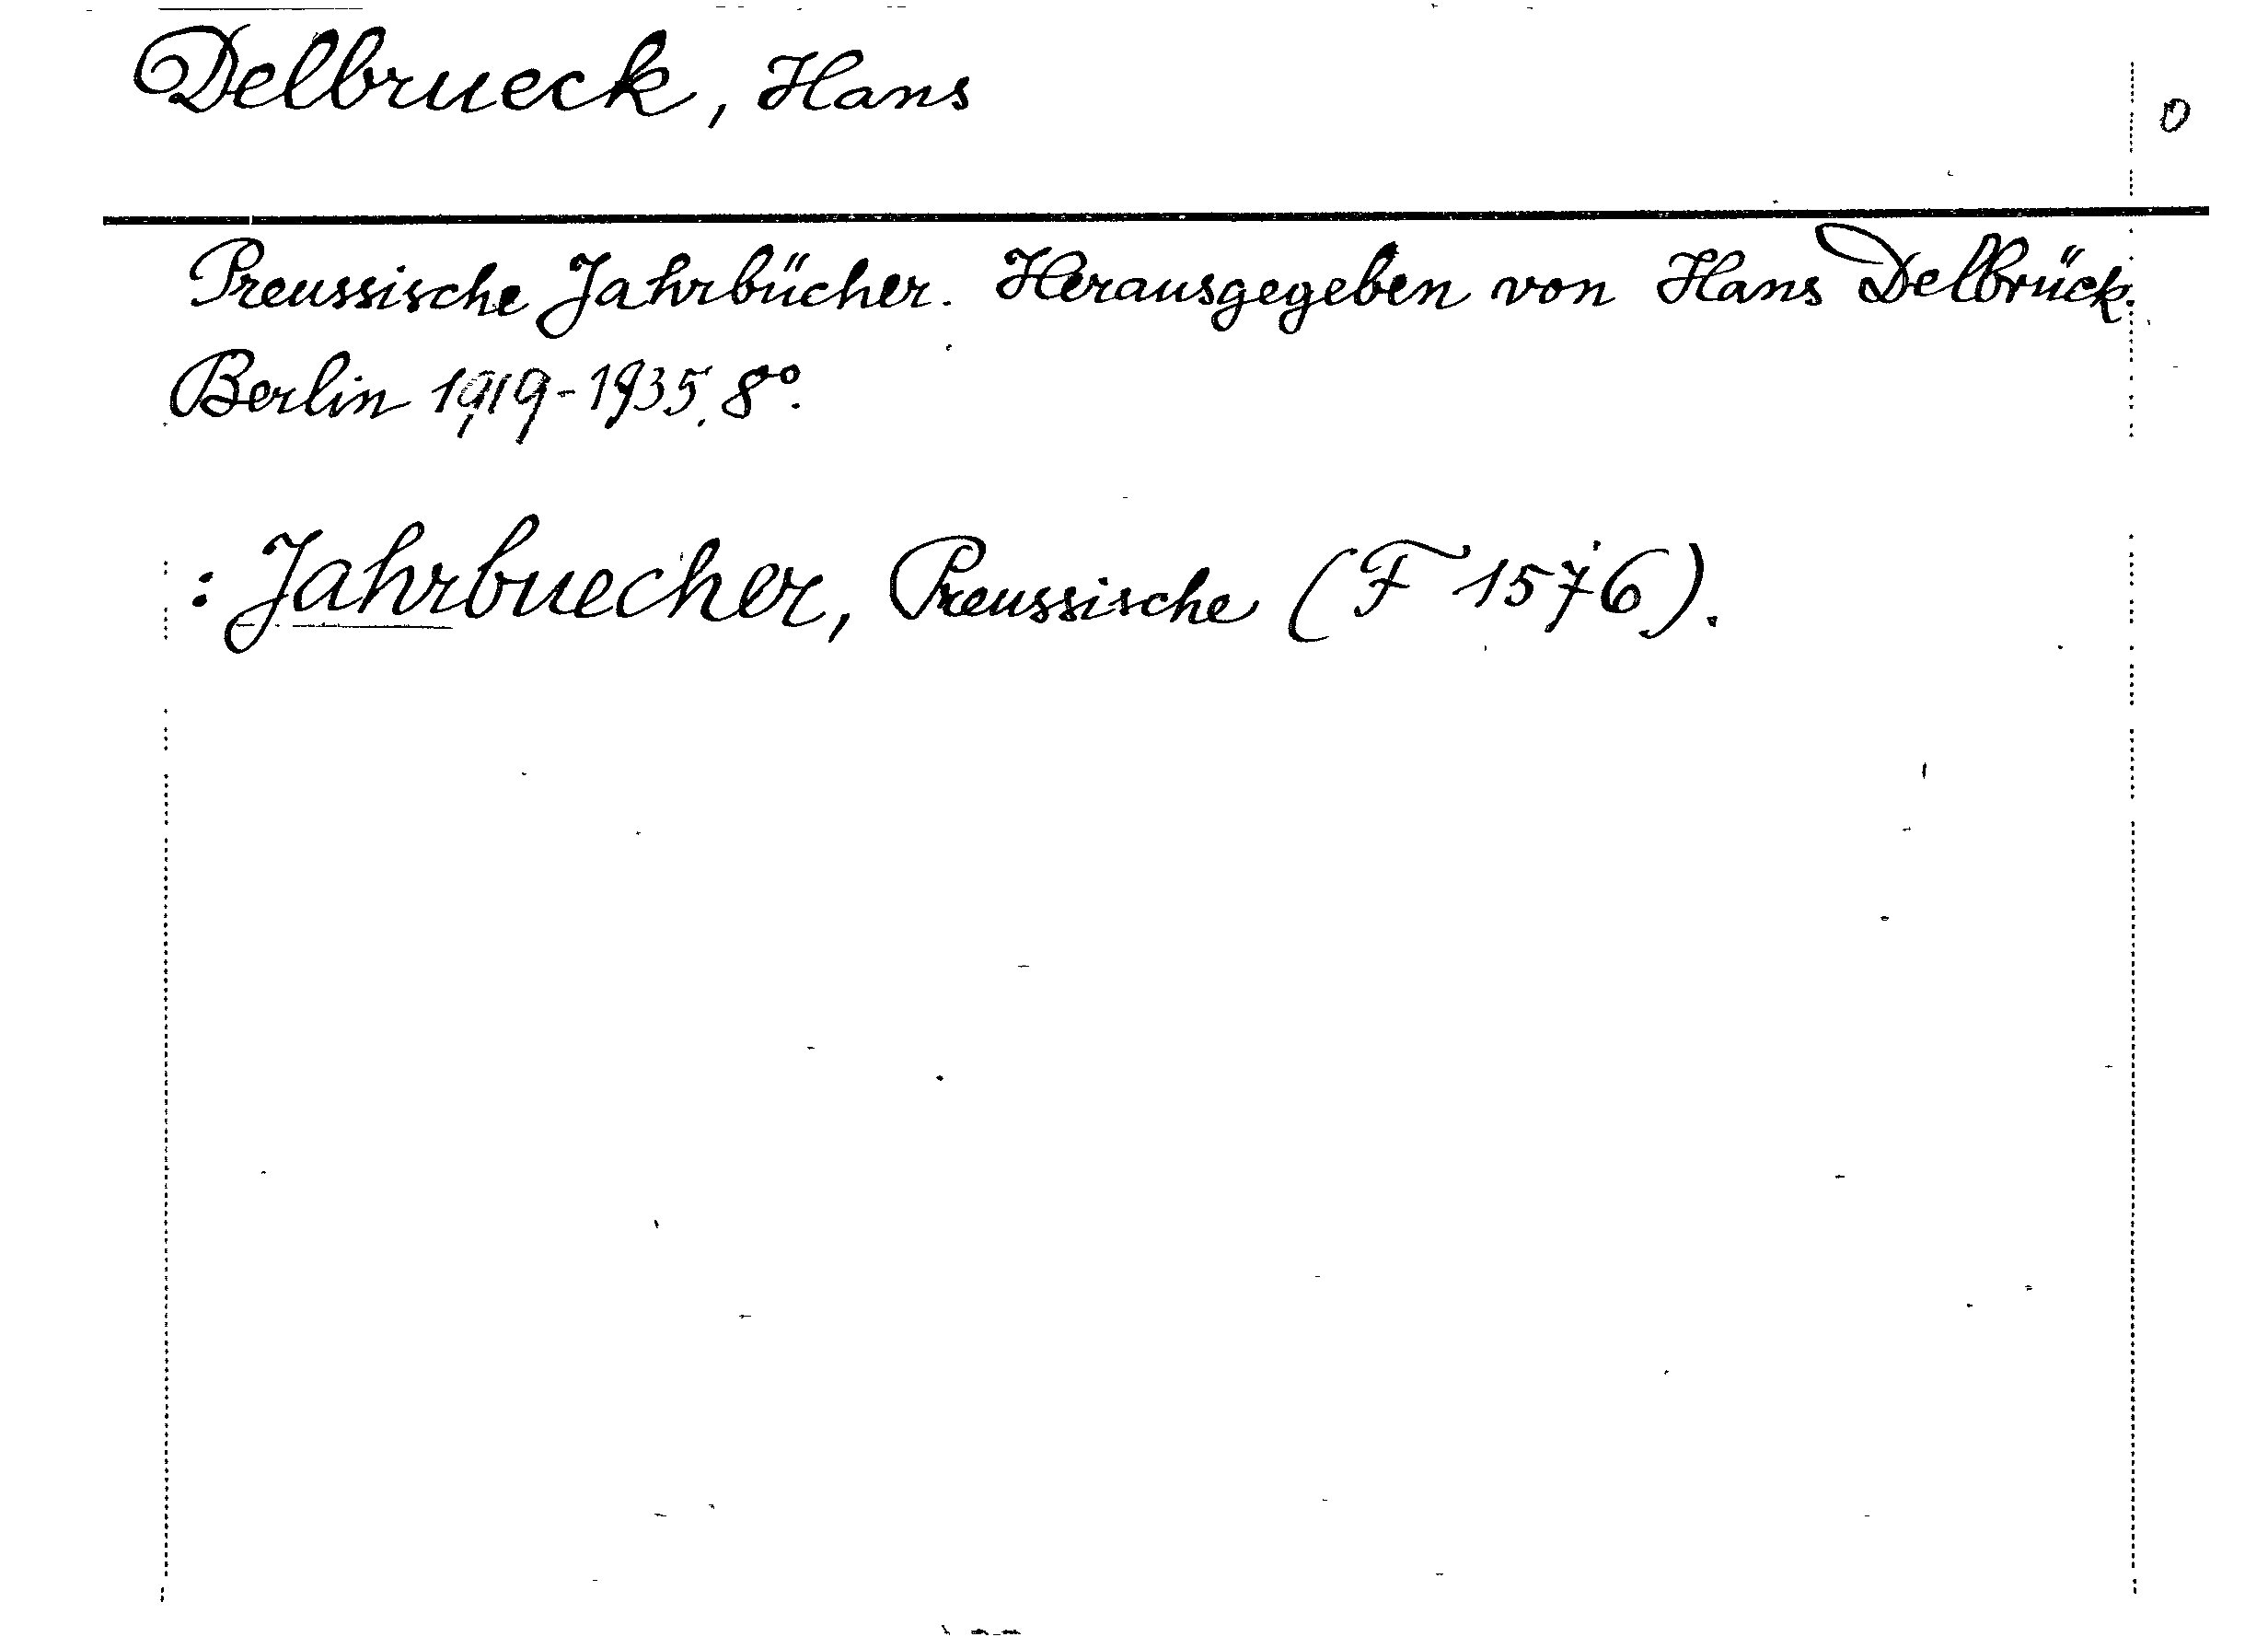 Delbrueck, Hans
0
Preussische Jahrbücher. Herausgegeben von Hans Delbrück.
Berlin 1919-1935. 8°.
: Jahrbuecher, Preussische (F 1576).